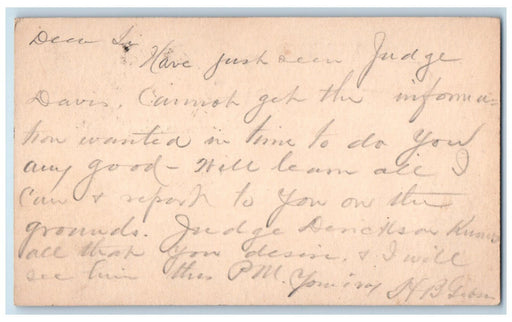 Dear Sir
Have just seen Judge
Davis. Cannot get the informa-
tion wanted in time to do you
any good - Will learn all I
can & report to you on the
grounds. Judge Derickson Knows
all that you desire. & I will
see him this P.M. Yours H B